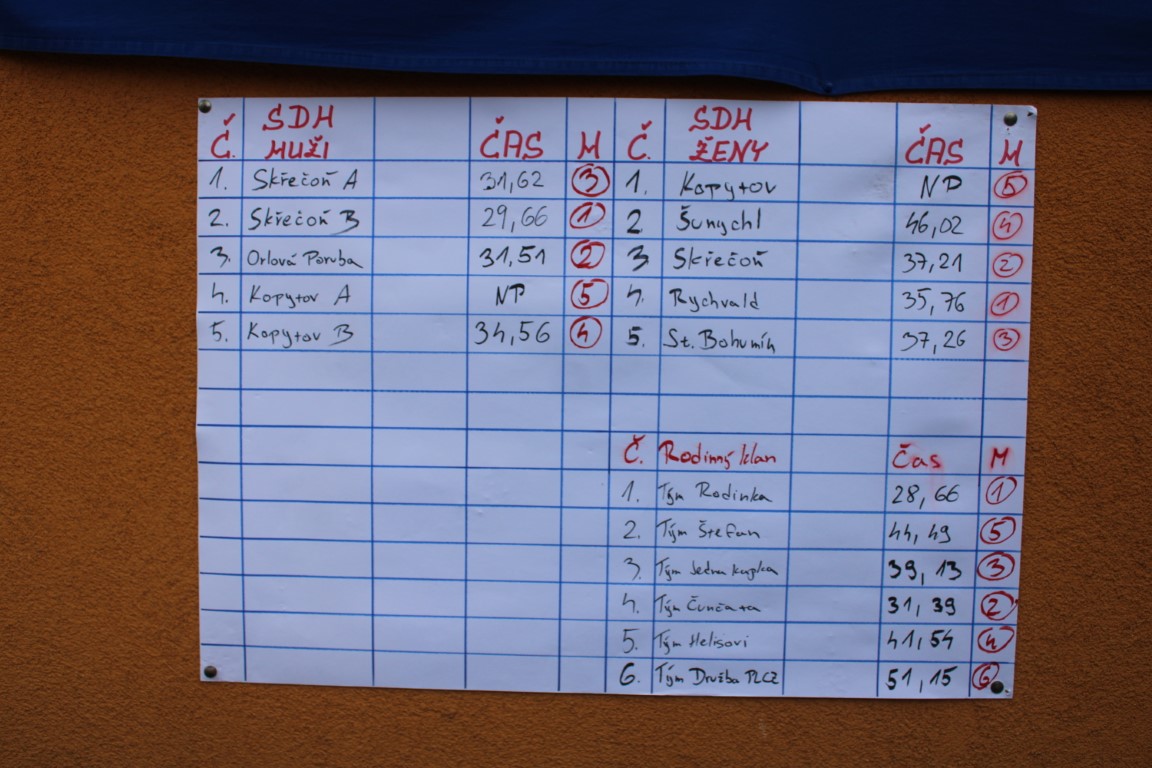 Č. SDH MUŽI ČAS M
1. Skřečoň A 31,62 3
2. Skřečoň B 29,66 1
3. Orlová Poruba 31,51 2
4. Kopytov A NP 5
5. Kopytov B 34,56 4
Č. SDH ŽENY ČAS M
1. Kopytov NP 5
2. Šunychl 46,02 4
3 Skřečoň 37,21 2
4. Rychvald 35,76 1
5. St. Bohumín 37,26 3
Č. Rodinný klan Čas M
1. Tým Rodinka 28,66 1
2. Tým Štefan 44,49 5
3. Tým Jedna kapka 39,13 3
4. Tým Čunčata 31,39 2
5. Tým Helisovi 41,54 4
6. Tým Družba PLCZ 51,15 6